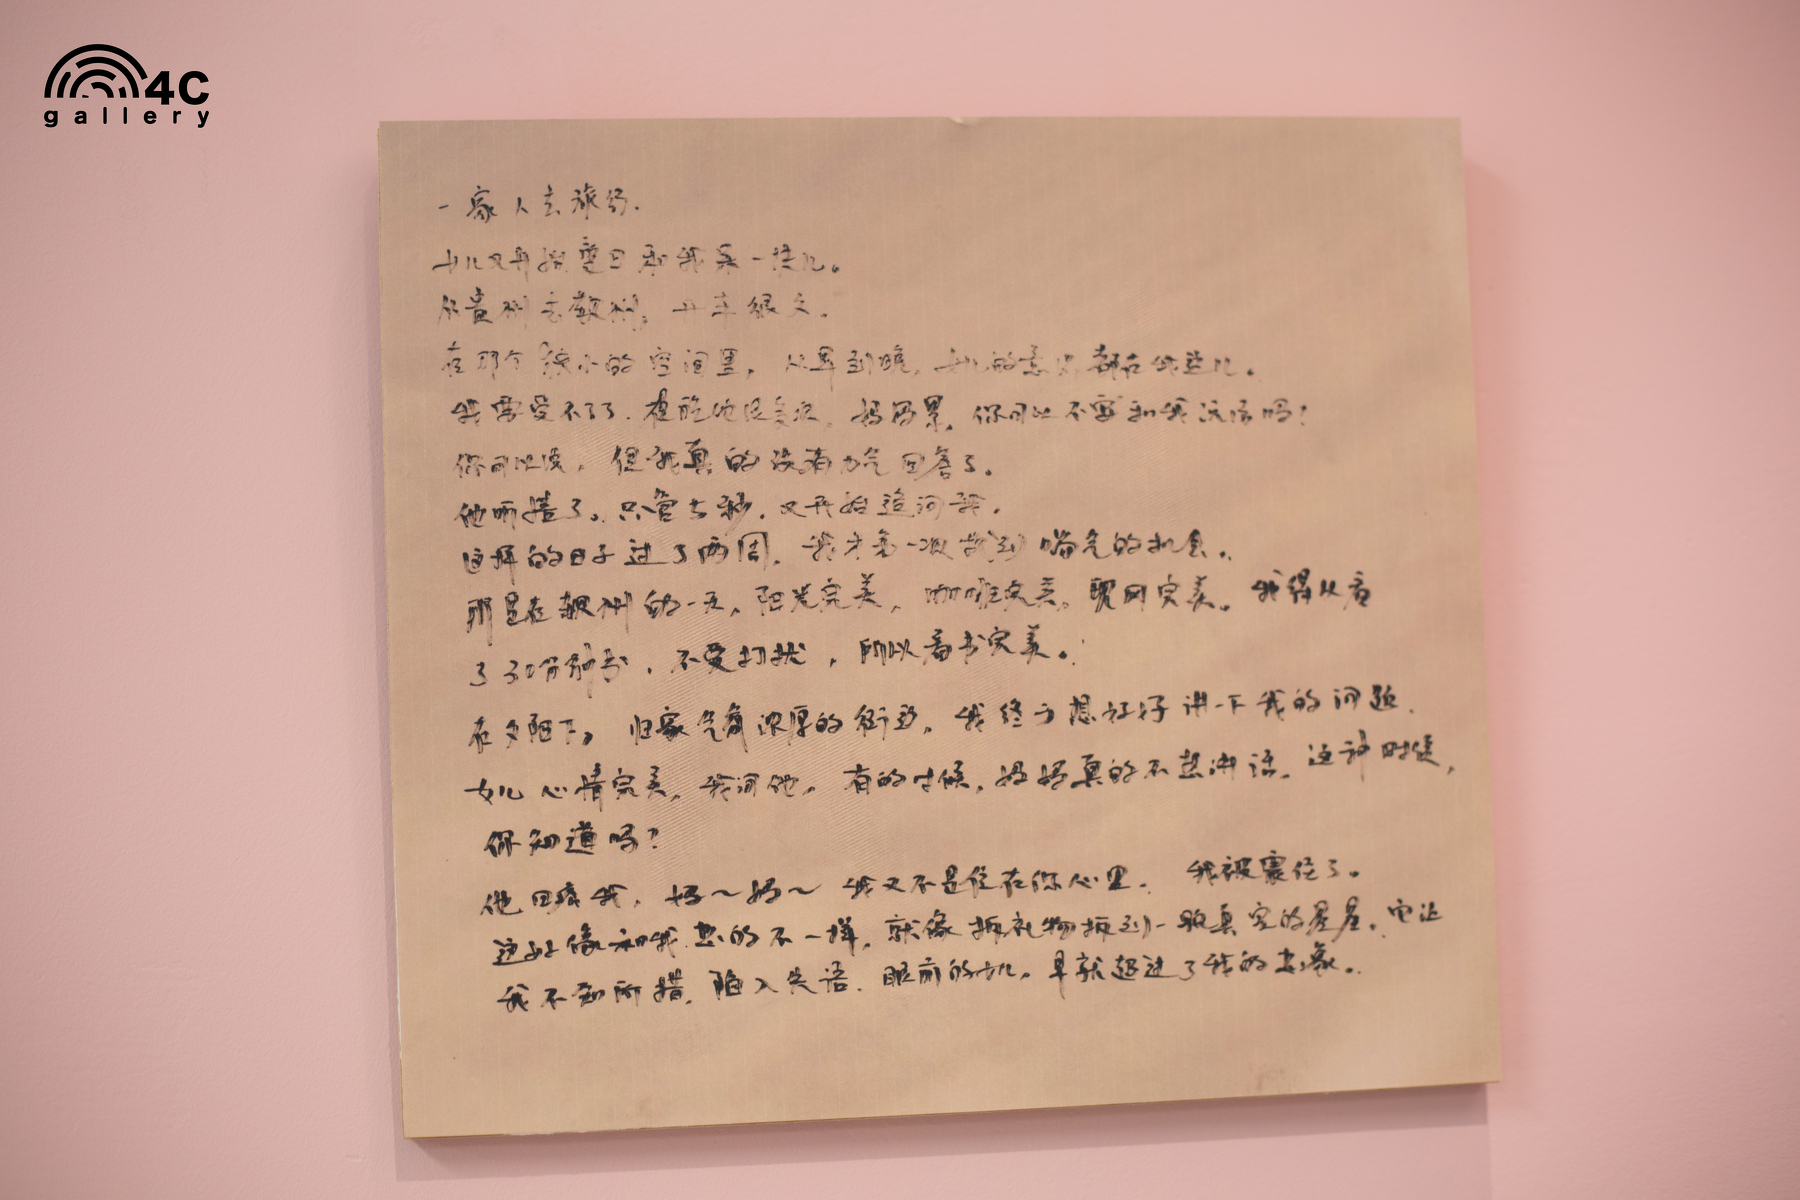 4C
gallery
一家人去旅行.
女儿又开始整日和我呆一块儿。
从贵州去苏州，开车很久.
在那个狭小的空间里，从早到晚，女儿的意识都在我这儿。
我要受不了了.妈妈累，你可以不要和我说话吗?
你可以说，但我真的没有力气回答了。
他听措了。只管七秒.又开始追问我.
这样的日子过了两周，我才第一次找到喘气的机会.
那是在苏州的一天，阳光完美，咖啡完美，完美。我得以看
了30分钟书，不受打扰，所以看书完美。
在夕阳下，归家气氛浓厚的街道，我终于想好好讲一下我的问题.
女儿心情完美，我问他，有的时候，妈妈真的不想讲话，这种时候，
你知道吗?
他回答我，妈~妈~我又不是住在你心里.我被震住了。
这好像和我想的不一样，就像拆礼物拆到一颗真实的星星.它让
我不知所措，陷入失语.眼前的女儿，早就超过了我的想象.